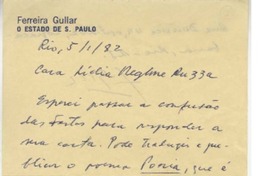 Ferreira Gullar
O ESTADO DE S. PAULO
Rio, 5/1/82
Cara Lidia
Esperei passar a confusão
das festas para responder a
sua carta. Pode traduzir e pu-
blicar o poema Poesia, que é